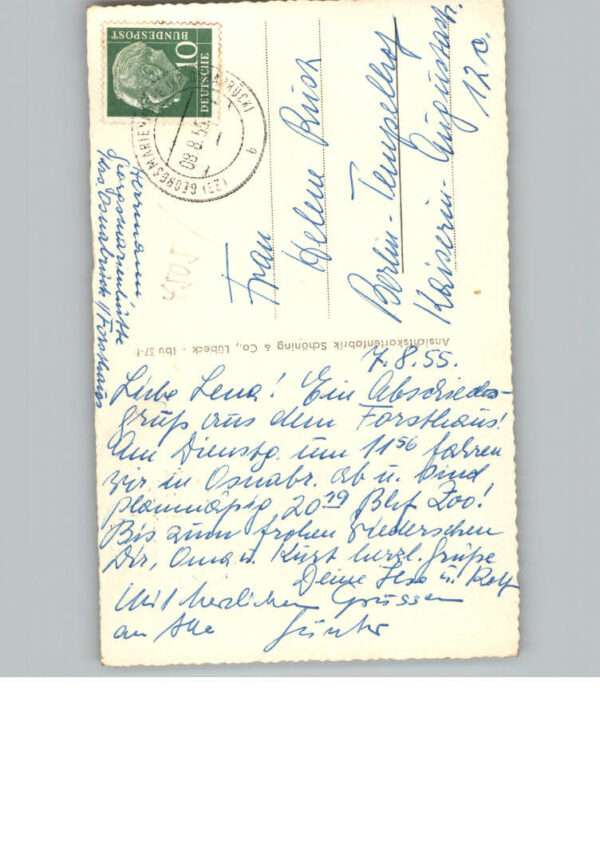 DEUTSCHE
BUNDESPOST
10
(23) GEORGSMARIENHÜTTE
08.8.55
b
Hermann
Georgsmarienhütte
Krs. Osnabrück / Forsthaus
Frau
Helene
Berlin-Tempelhof
Kaiserin-Augustastr.
12 c.
Ansichtskartenfabrik Schöning & Co., Lübeck - Ibu 37-f
7.8.55.
Liebe Lena! Ein Abschieds-
gruß aus dem Forsthaus!
Am Dienstg. um 11 56 fahren
wir in Osnabr. ab u. sind
planmäßig 20 19 Bhf Zoo!
Bis zum frohen Wiedersehen
Dir, Oma u. Kurt herzl. Grüße
Deine Ilse u. Rolf
Mit herzlichen Grüssen
an Alle Günter